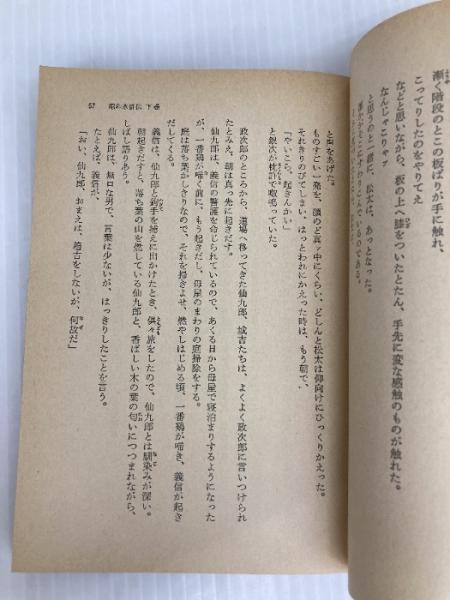 漸く階段のとこの板ばりが手に触れ、
こってりしたのをやりてえ
なんじゃこりゃァ
などと思いながら、板の上へ膝をついたとたん、手先に変な感触のものが触れた。
と思うのと一緒に、松太は、あっとなった。
57
下巻
と声をあげた。
ものすごい一発を、頭のど真ン中にくらい、どしんと松太は仰向けにひっくりかえった。
それきりのびてしまい、はっとわれにかえった時は、もう朝で、
「やいこら、起きんかい」
と銀次が枕許で怒鳴っていた。
政次郎のところから、道場へ移ってきた仙九郎、城吉たちは、よくよく政次郎に言いつけられ
たとみえ、朝は真っ先に起きだす。
仙九郎は、義信の警護を命じられているので、あくる日から母屋で寝泊まりするようになった
が、一番鶏が啼く前に、もう起きだし、母屋のまわりの庭掃除をする。
庭は落ち葉がしきりなので、それを掃きよせ、燃やしはじめる頃、一番鶏が啼き、義信が起き
だしてくる。
義信は、仙九郎と釣手を捕えに出かけたとき、倶々旅をしたので、仙九郎とは馴染みが深い。
朝起きだすと、落ち葉の山を燃している仙九郎と、香ばしい木の葉の匂いにつつまれながら、
しばし語りあう。
仙九郎は、無口な男で、言葉は少ないが、はっきりしたことを言う。
たとえば、義信が、
「おい、仙九郎、おまえは、稽古をしないが、何故だ」